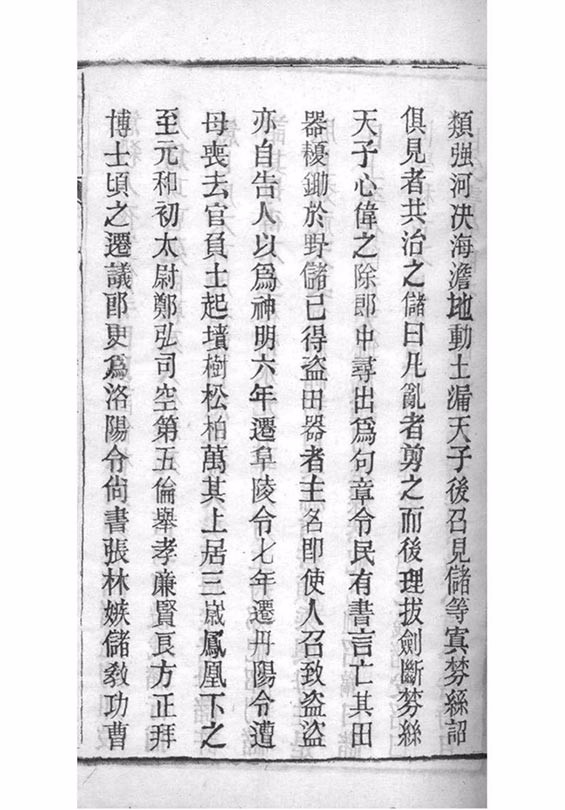 類强河决海澹地動土漏天子後召見儲等寘棼絲詔
俱見者共治之儲曰凡亂者剪之而後理拔劍斷棼絲
天子心偉之除郎中尋出爲句章令民有書言亡其田
器耰鋤於野儲已得盗田器者主名卽使人召致盗盗
亦自告人以爲神明六年遷阜陵令七年遷丹陽令遭
母喪去官負土起墳樹松柏萬其上居三歲鳳凰下之
至元和初太尉鄭弘司空第五倫舉孝廉賢良方正拜
博士頃之遷議郎更爲洛陽令尙書張林嫉儲敎功曹